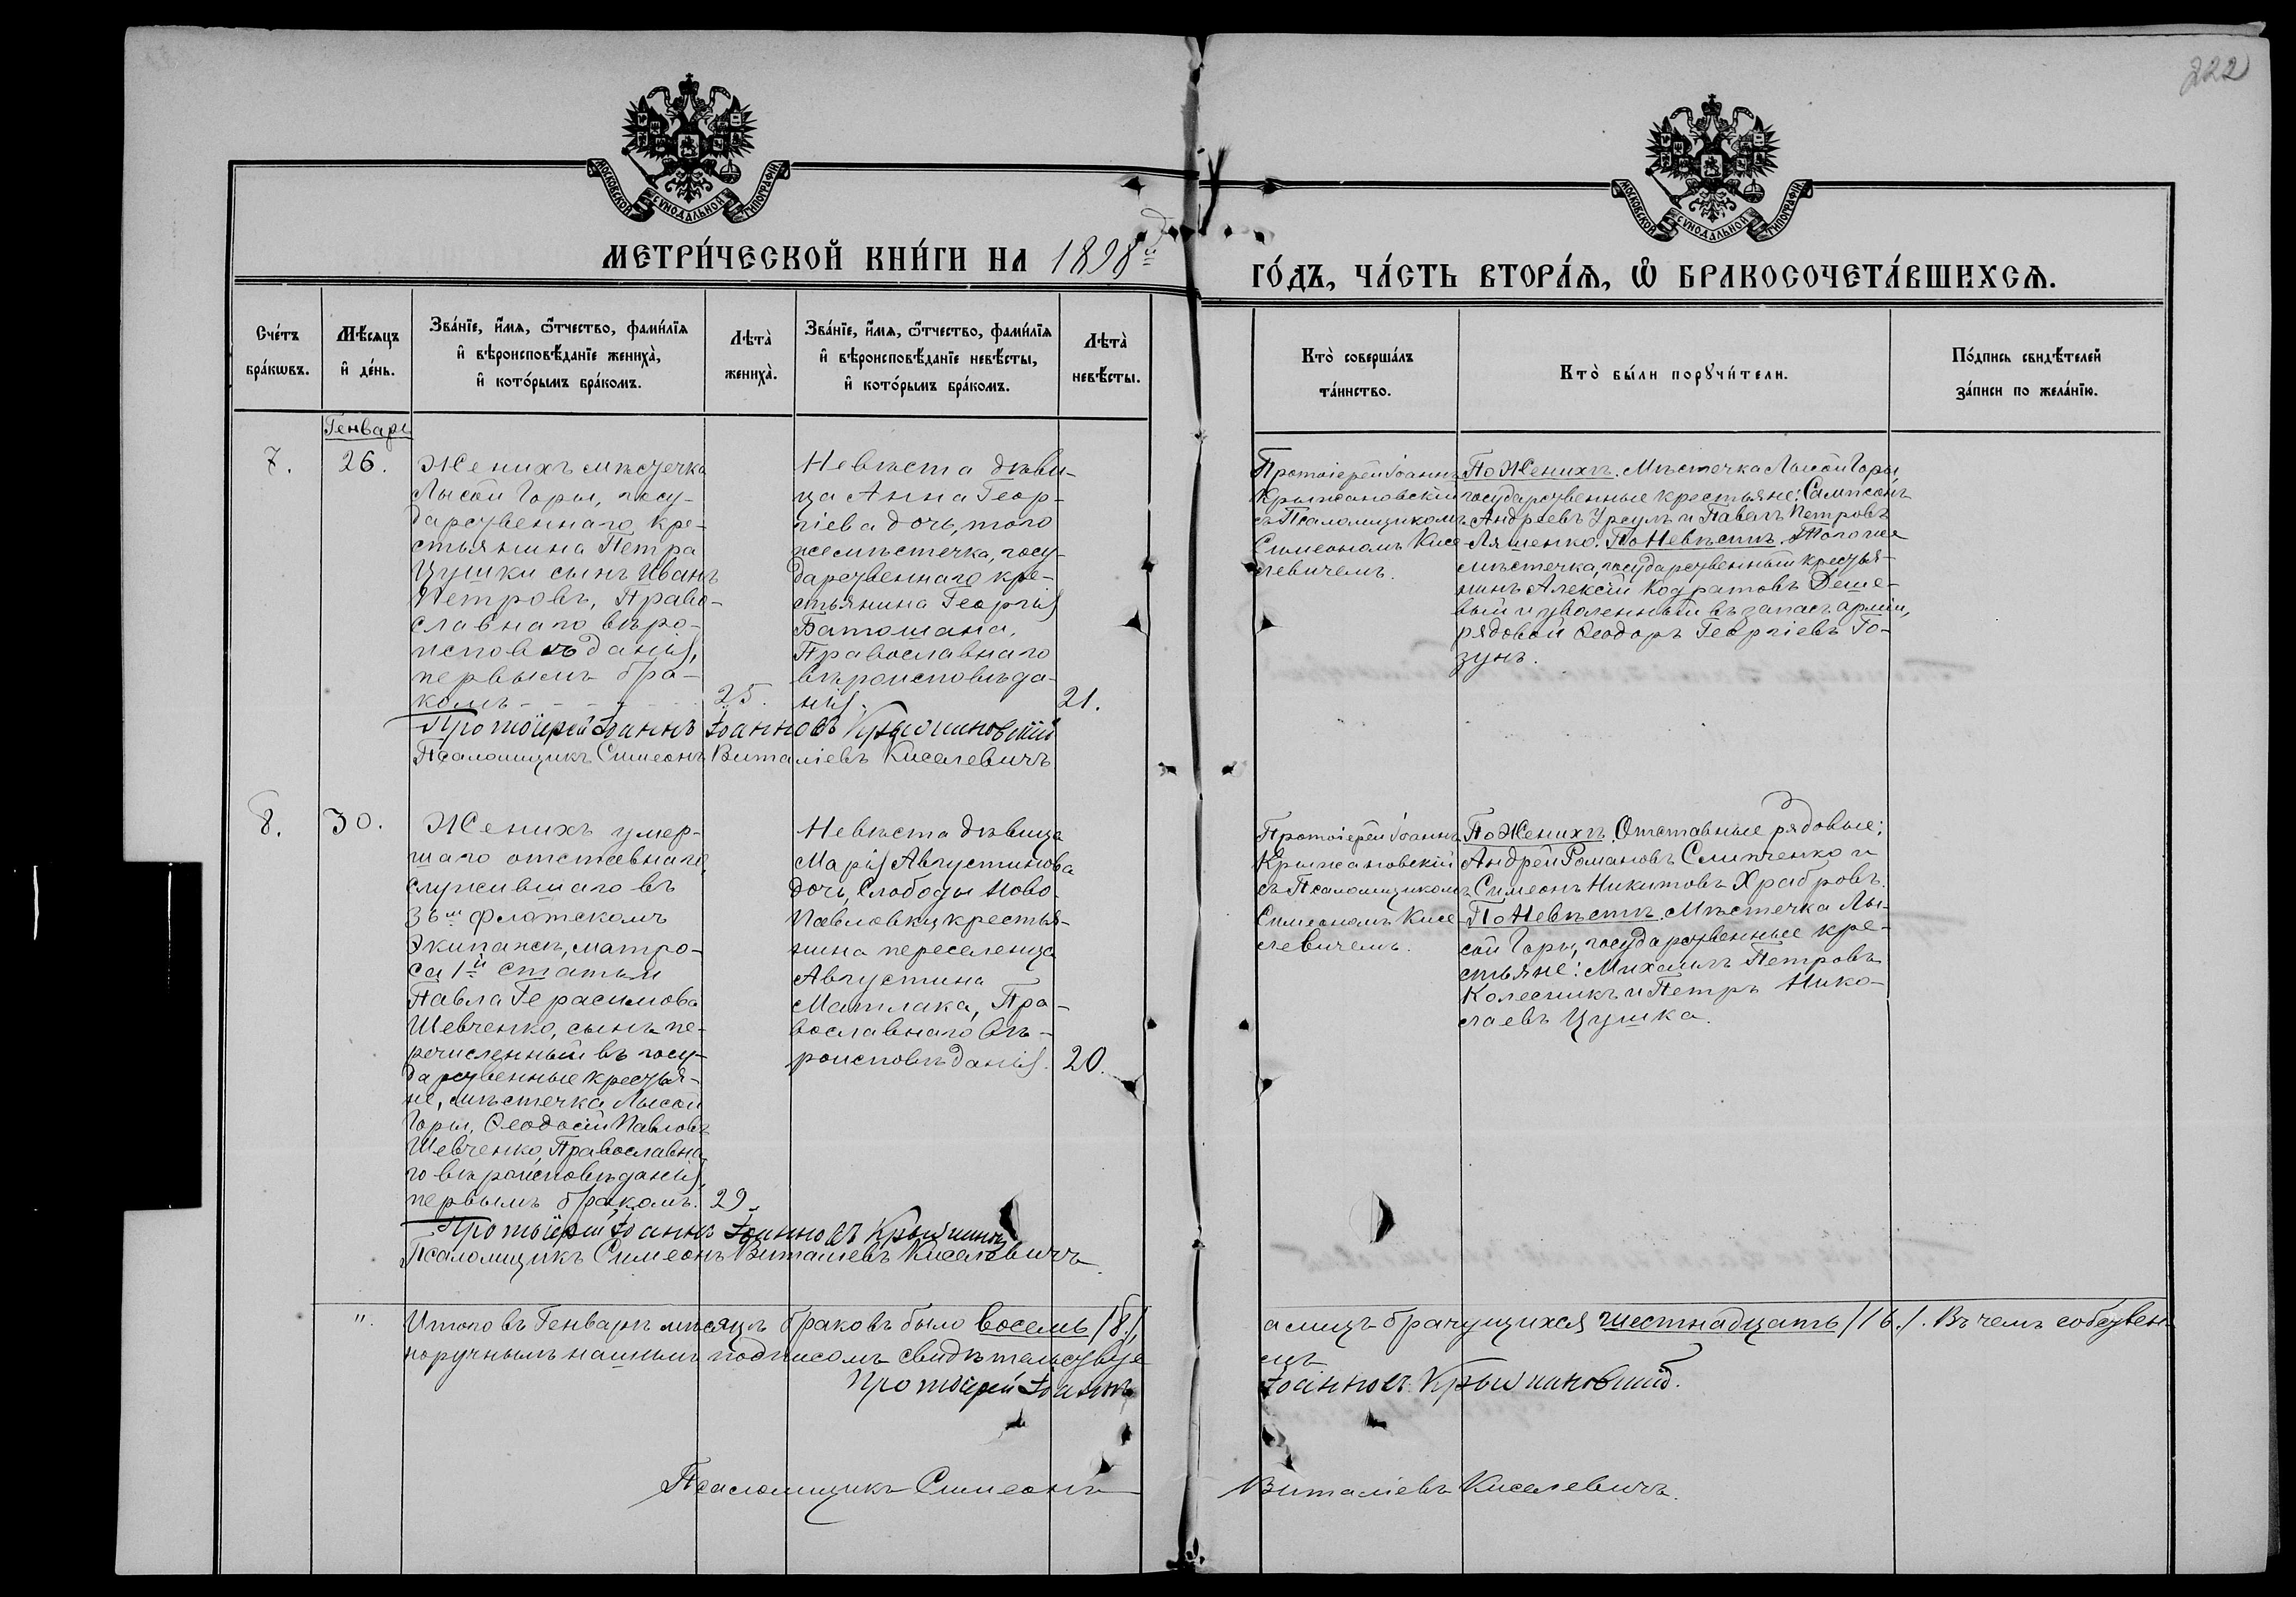 222
МОСКОВСКОЙ СѴНОДАЛЬНОЙ ТИПОГРАФІИ
МОСКОВСКОЙ СѴНОДАЛЬНОЙ ТИПОГРАФІИ
МЕТРИ́ЧЕСКОЙ КНИ́ГИ НА 1898й
ГО́ДЪ, ЧА́СТЬ ВТОРА́Я, Ѡ҆ БРАКОСОЧЕТА́ВШИХСЯ.
Сче́тъ
бра́кѡвъ.
Мѣ́сяцъ
и҆ де́нь.
Зва́нїе, и҆́мя, ѻ҆́тчество, фами́лїя
и҆ вѣроисповѣ́данїе жениха̀,
и҆ кото́рымъ бра́комъ.
Лѣта̀
жениха̀.
Зва́нїе, и҆́мя, ѻ҆́тчество, фами́лїя
и҆ вѣроисповѣ́данїе невѣ́сты,
и҆ кото́рымъ бра́комъ.
Лѣта̀
невѣ́сты.
Кто̀ соверша́лъ
та́инство.
Кто̀ бы́ли порꙋчи́тели.
По́дпись свидѣ́телей
за́писи по жела́нїю.
Генварь
7.
26.
Женихъ мѣстечка
Лысой Горы, госу-
дарственнаго кре-
стьянина Петра
Цушки сынъ Иванъ
Петровъ, Право-
славнаго вѣро-
исповѣданія,
первымъ бра-
комъ - - - - -
25.
Невѣста дѣви-
ца Анна Геор-
гіева дочь, того
же мѣстечка, госу-
дарственнаго кре-
стьянина Георгія
Батошана,
Православнаго
вѣроисповѣда-
нія.
21.
Протоіерей Іоаннъ Іоанновъ Крыжановскій
Псаломщикъ Симеонъ Виталіевъ Киселевичъ
Протоіерей Іоаннъ
Крыжановскій
съ Псаломщикомъ
Симеономъ Кисе-
левичемъ.
По Женихѣ. Мѣстечка Лысой Горы
государственные крестьяне: Сампсонъ
Андреевъ Урсулъ и Павелъ Петровъ
Ляшенко. По Невѣстѣ. Того же
мѣстечка, государственный крестья-
нинъ Алексій Кодратовъ Деше-
вый и уволенный въ запасъ арміи,
рядовой Ѳеодоръ Георгіевъ Го-
зунъ.
8.
30.
Женихъ умер-
шаго отставнаго,
служившаго въ
36м флотскомъ
Экипажѣ, матро-
са 1й статьи
Павла Герасимова
Шевченко, сынъ пе-
речисленный въ госу-
дарственные крестья-
не, мѣстечка Лысой
Горы, Ѳеодосій Павловъ
Шевченко, Православна-
го вѣроисповѣданія,
первымъ бракомъ.
29.
Невѣста дѣвица
Марія Августинова
дочь, Слободы Ново-
Павловки, крестья-
нина переселенца
Августина
Матлака, Пра-
вославнаго вѣ-
роисповѣданія.
20.
Протоіерей Іоаннъ Іоанновъ Крыжанов
Псаломщикъ Симеонъ Виталіевъ Киселевичъ
Протоіерей Іоаннъ
Крыжановскій
съ Псаломщикомъ
Симеономъ Кисе-
левичемъ.
По Женихѣ. Отставные рядовые:
Андрей Романовъ Слипченко и
Симеонъ Никитовъ Храбровъ.
По Невѣстѣ. Мѣстечка Лы-
сой Горы, государственные кре-
стьяне: Михаилъ Петровъ
Колесникъ и Петръ Нико-
лаевъ Цушка.
". Итого въ Генварѣ мѣсяцѣ браковъ было восемь /8./, а лицъ брачущихся шестнадцать /16./. Въ чемъ собствен-
норучнымъ нашимъ подписомъ свидѣтельствуемъ
Протоіерей Іоаннъ Іоанновъ Крыжановскій.
Псаломщикъ Симеонъ Виталіевъ Киселевичъ.